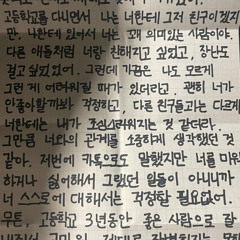 고등학교를 다니면서 나는 너한테 그저 친구이겠지
만, 나한테 있어서 너는 꽤 의미있는 사람이야.
다른 애들처럼 너랑 친해지고 싶었고, 장난도
걸고 싶었었어. 그런데 가끔은 나도 모르게
그런 게 어려워질 때가 있더라고. 괜히 너가
안좋아할까봐 걱정하고, 다른 친구들과는 다르게
너한테는 내가 조심스러워지는 것 같더라.
그만큼 너와의 관계를 소중하게 생각했던 것
같아. 저번에 카톡으로도 말했지만 너를 미워
하거나 싫어해서 그랬던 일들이 아니니까
너 스스로에 대해서는 걱정할 필요없어.
무튼, 고등학교 3년동안 좋은 사람으로